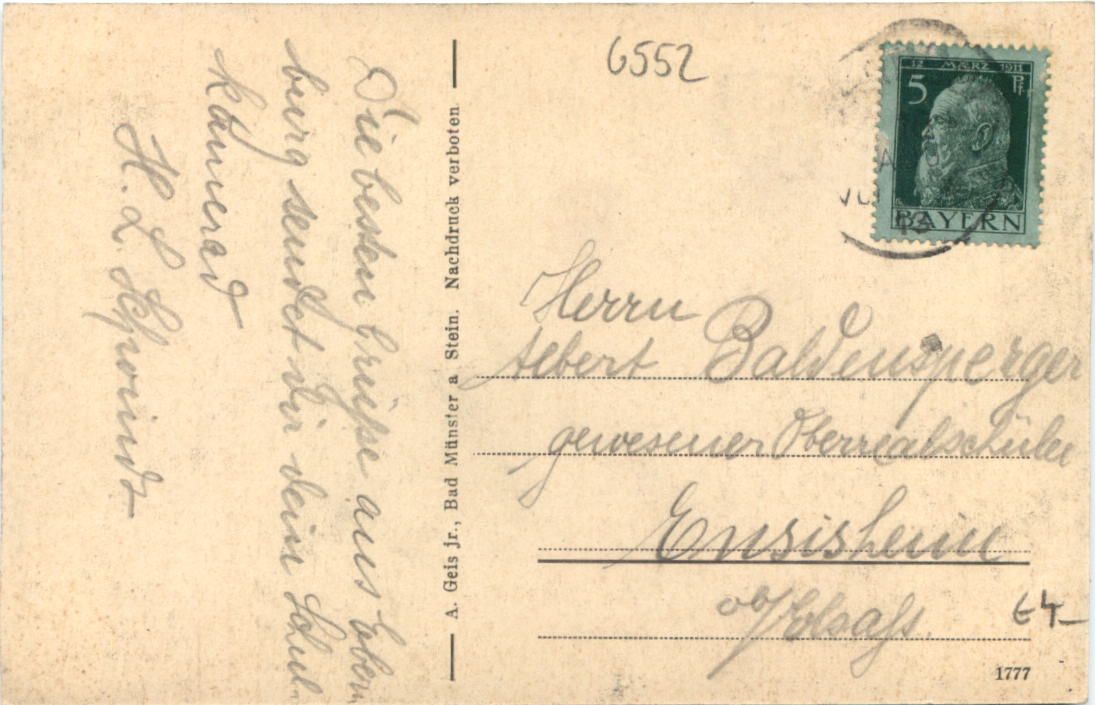 Die besten Grüße aus Eben-
burg sendet dir dein Schul-
kamerad
H. L. Schwindt
A. Geis jr., Bad Münster a Stein. Nachdruck verboten
6552
12 MÄRZ 1911
5 Pf.
BAYERN
Herrn
Albert Baldensperger
gewesener Oberrealschüler
Ensisheim
o/Elsass.
64-
1777